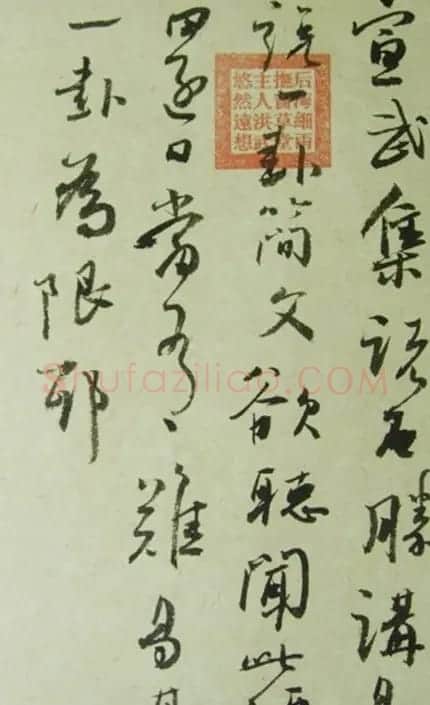 宣武集諸名勝講
說一卦簡文欲聽聞此
還曰當有難易
一卦為限邪
細雨
草堂
主人洪
悠然遠想
Shufaziliao.COM